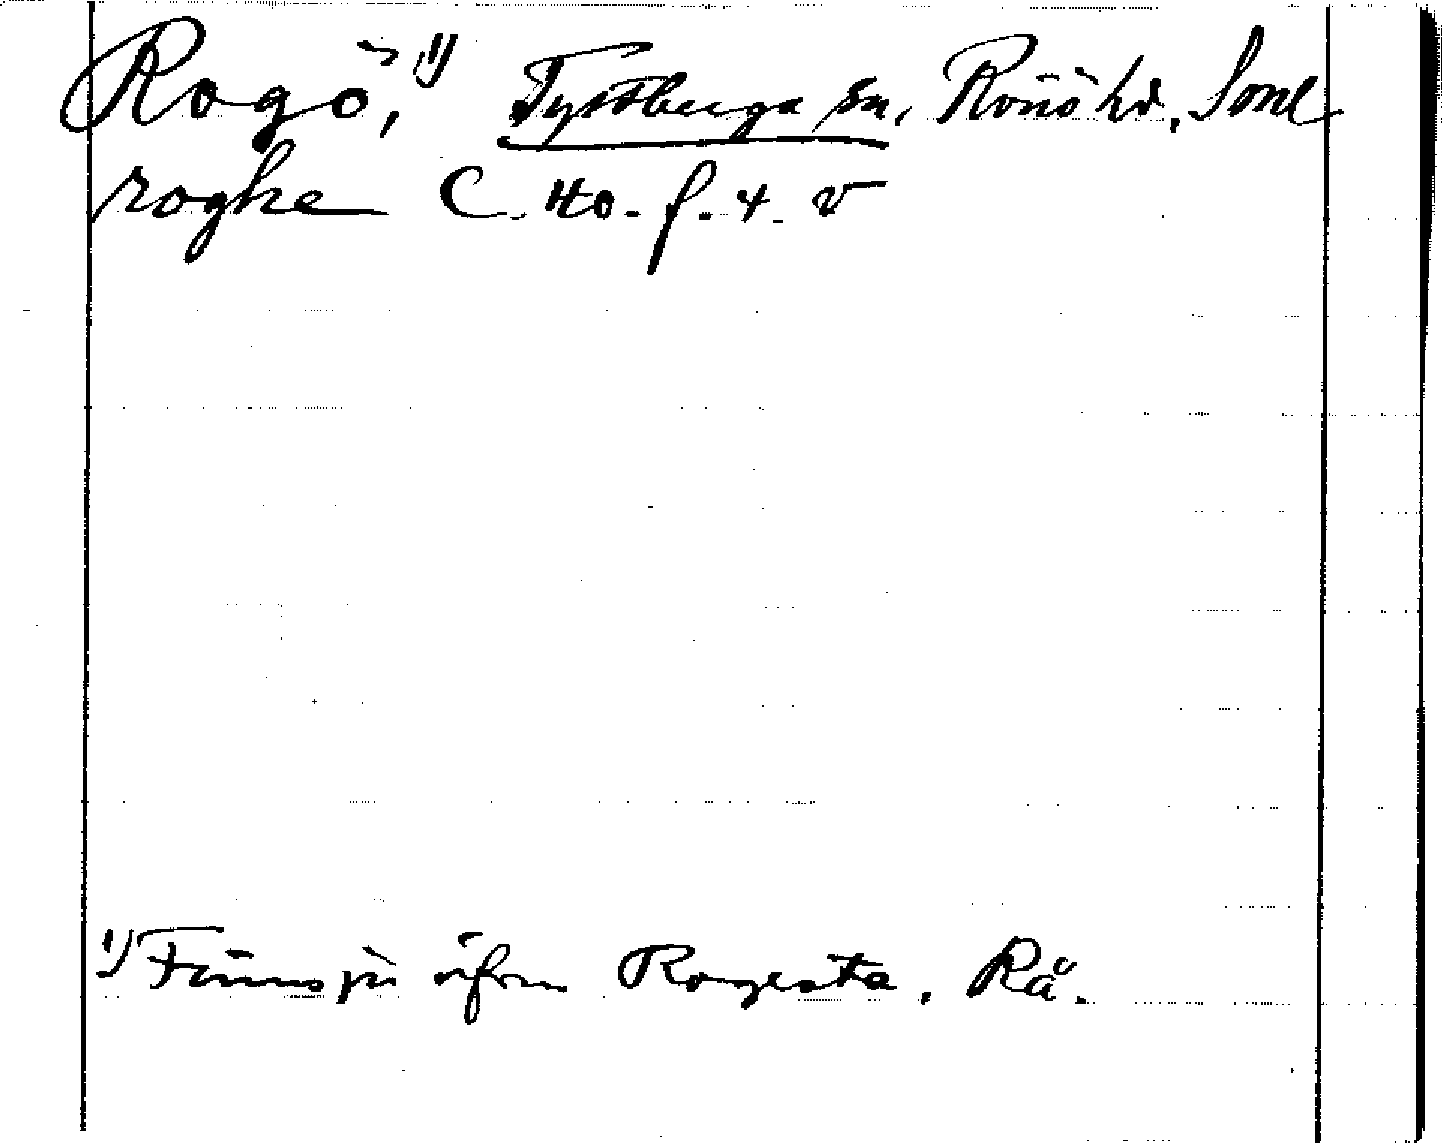 Rogö, 1) Tystberga sn, Rönö hd, Sml
roghe C. 40. f. 4. v
1) Finns ju äfven Rogesta, Rå.